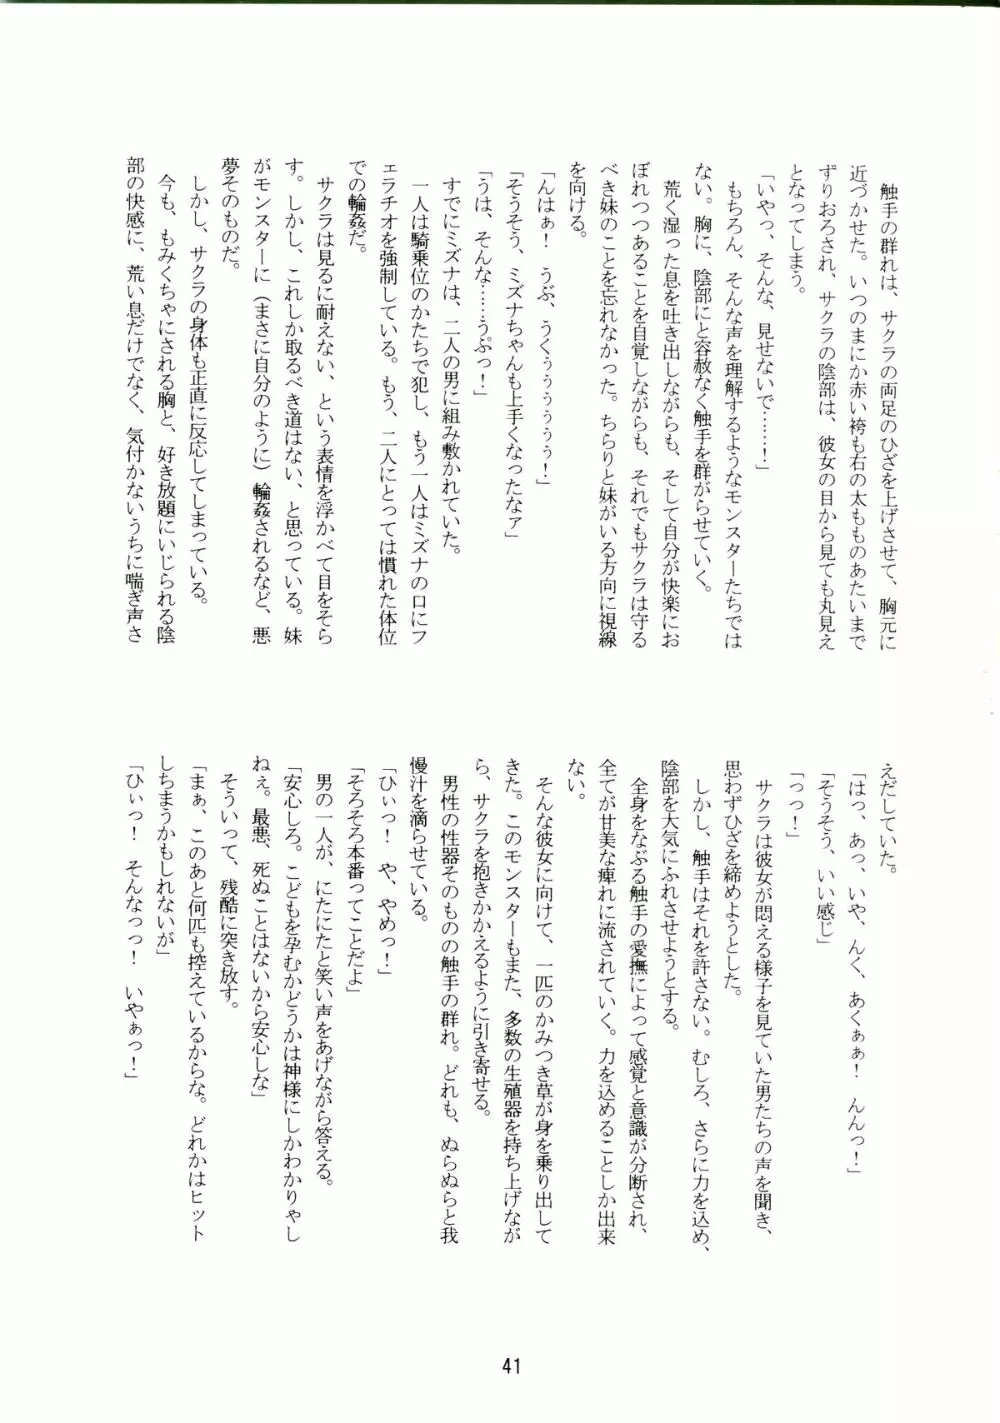 触手の群れは、サクラの両足のひざを上げさせて、胸元に
近づかせた。いつのまにか赤い袴も右の太もものあたいまで
ずりおろされ、サクラの陰部は、彼女の目から見ても丸見え
となってしまう。
「いやっ、そんな、見せないで……！」
もちろん、そんな声を理解するようなモンスターたちでは
ない。胸に、陰部にと容赦なく触手を群がらせていく。
荒く湿った息を吐き出しながらも、そして自分が快楽にお
ぼれつつあることを自覚しながらも、それでもサクラは守る
べき妹のことを忘れなかった。ちらりと妹がいる方向に視線
を向ける。
「んはぁ！　うぶ、うくぅぅぅぅぅ！」
「そうそう、ミズナちゃんも上手くなったなァ」
「うは、そんな……うぷっ！」
すでにミズナは、二人の男に組み敷かれていた。
一人は騎乗位のかたちで犯し、もう一人はミズナの口にフ
ェラチオを強制している。もう、二人にとっては慣れた体位
での輪姦だ。
サクラは見るに耐えない、という表情を浮かべて目をそら
す。しかし、これしか取るべき道はない、と思っている。妹
がモンスターに（まさに自分のように）輪姦されるなど、悪
夢そのものだ。
しかし、サクラの身体も正直に反応してしまっている。
今も、もみくちゃにされる胸と、好き放題にいじられる陰
部の快感に、荒い息だけでなく、気付かないうちに喘ぎ声さ
えだしていた。
「はっ、あっ、いや、んく、あくぁぁ！　んんっ！」
「そうそう、いい感じ」
「っっ！」
サクラは彼女が悶える様子を見ていた男たちの声を聞き、
思わずひざを締めようとした。
しかし、触手はそれを許さない。むしろ、さらに力を込め、
陰部を大気にふれさせようとする。
全身をなぶる触手の愛撫によって感覚と意識が分断され、
全てが甘美な痺れに流されていく。力を込めることしか出来
ない。
そんな彼女に向けて、一匹のかみつき草が身を乗り出して
きた。このモンスターもまた、多数の生殖器を持ち上げなが
ら、サクラを抱きかかえるように引き寄せる。
男性の性器そのものの触手の群れ。どれも、ぬらぬらと我
慢汁を滴らせている。
「ひぃっ！　や、やめっ！」
「そろそろ本番ってことだよ」
男の一人が、にたにたと笑い声をあげながら答える。
「安心しろ。こどもを孕むかどうかは神様にしかわかりゃし
ねぇ。最悪、死ぬことはないから安心しな」
そういって、残酷に突き放す。
「まぁ、このあと何匹も控えているからな。どれかはヒット
しちまうかもしれないが」
「ひぃっ！　そんなっっ！　いやぁっ！」
41